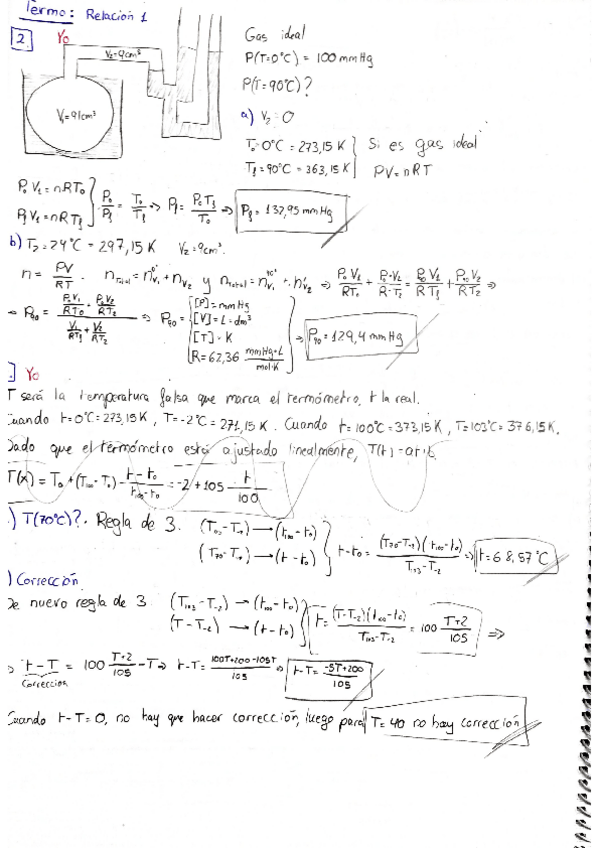 Termo: Relación 1
2 Yo
V₂=9cm³
V₁=91cm³
Gas ideal
P(T=0°C) = 100 mmHg
P(T=90°C)?
a) V₂=0
T₀=0°C = 273,15 K
T_f=90°C = 363,15K } Si es gas ideal PV=nRT
P₀V₁=nRT₀
P_fV₁=nRT_f } P₀/P_f = T₀/T_f => P_f = P₀T_f/T₀ => P_f=132,95 mmHg
b) T₂=24°C = 297,15 K V₂=9cm³.
n = PV/RT . n_total = n_V₁^0° + n_V₂ y n_total = n_V₁^90° + n'_V₂ => P₀V₁/RT₀ + P₀·V₂/R·T₂ = P₉₀V₁/RT_f + P₉₀V₂/RT₂ =>
=> P₉₀ = (P₀V₁/RT₀ + P₀V₂/RT₂)/(V₁/RT_f + V₂/RT₂) => P₉₀ = { [P]=mmHg
[V]=L=dm³
[T]=K
R=62,36 mmHg·L/mol·K } => P₉₀=129,4 mmHg
] Yo
T será la temperatura falsa que marca el termómetro, t la real.
Cuando t=0°C=273,15K, T=-2°C=271,15K. Cuando t=100°C=373,15K, T=103°C=376,15K.
Dado que el termómetro está ajustado linealmente, T(t)=at+b
T(x) = T₀+(T₁₀₀-T₀) (t-t₀)/(t₁₀₀-t₀) = -2+105 t/100
) T(70°C)?. Regla de 3. (T₁₀₃-T₋₂) → (t₁₀₀-t₀)
(T₇₀-T₋₂) → (t-t₀) } t-t₀ = (T₇₀-T₋₂)(t₁₀₀-t₀)/(T₁₀₃-T₋₂) => t=68,57°C
) Corrección
De nuevo regla de 3. (T₁₀₃-T₋₂) → (t₁₀₀-t₀)
(T-T₋₂) → (t-t₀) } t = (T-T₋₂)(t₁₀₀-t₀)/(T₁₀₃-T₋₂) = 100 (T+2)/105 =>
=> t-T = 100 (T+2)/105 - T => t-T = (100T+200-105T)/105 => t-T = (-5T+200)/105
Corrección
Cuando t-T=0, no hay que hacer corrección, luego para T=40 no hay corrección